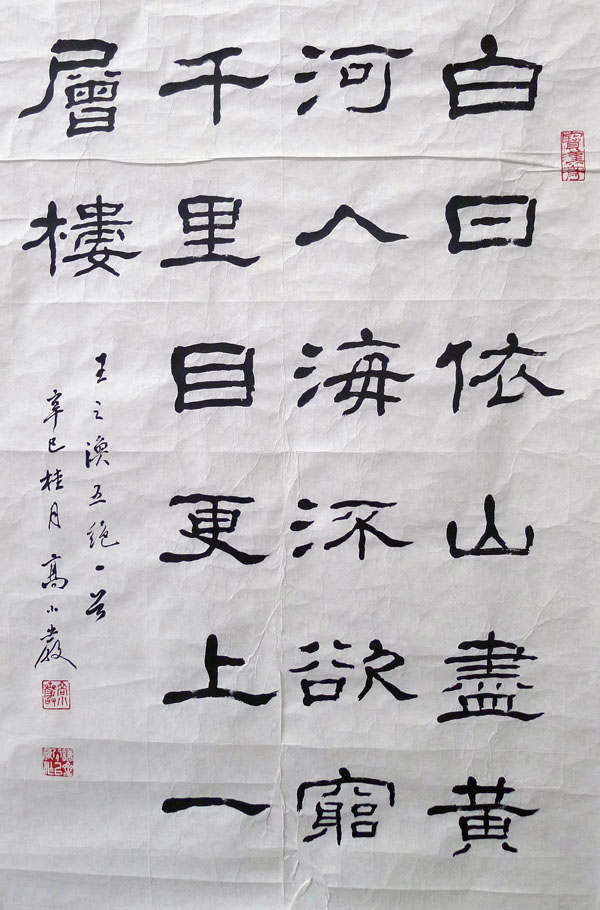 白日依山盡黃
河入海流欲窮
千里目更上一
層樓
王之渙五絕一首
辛巳桂月 高小